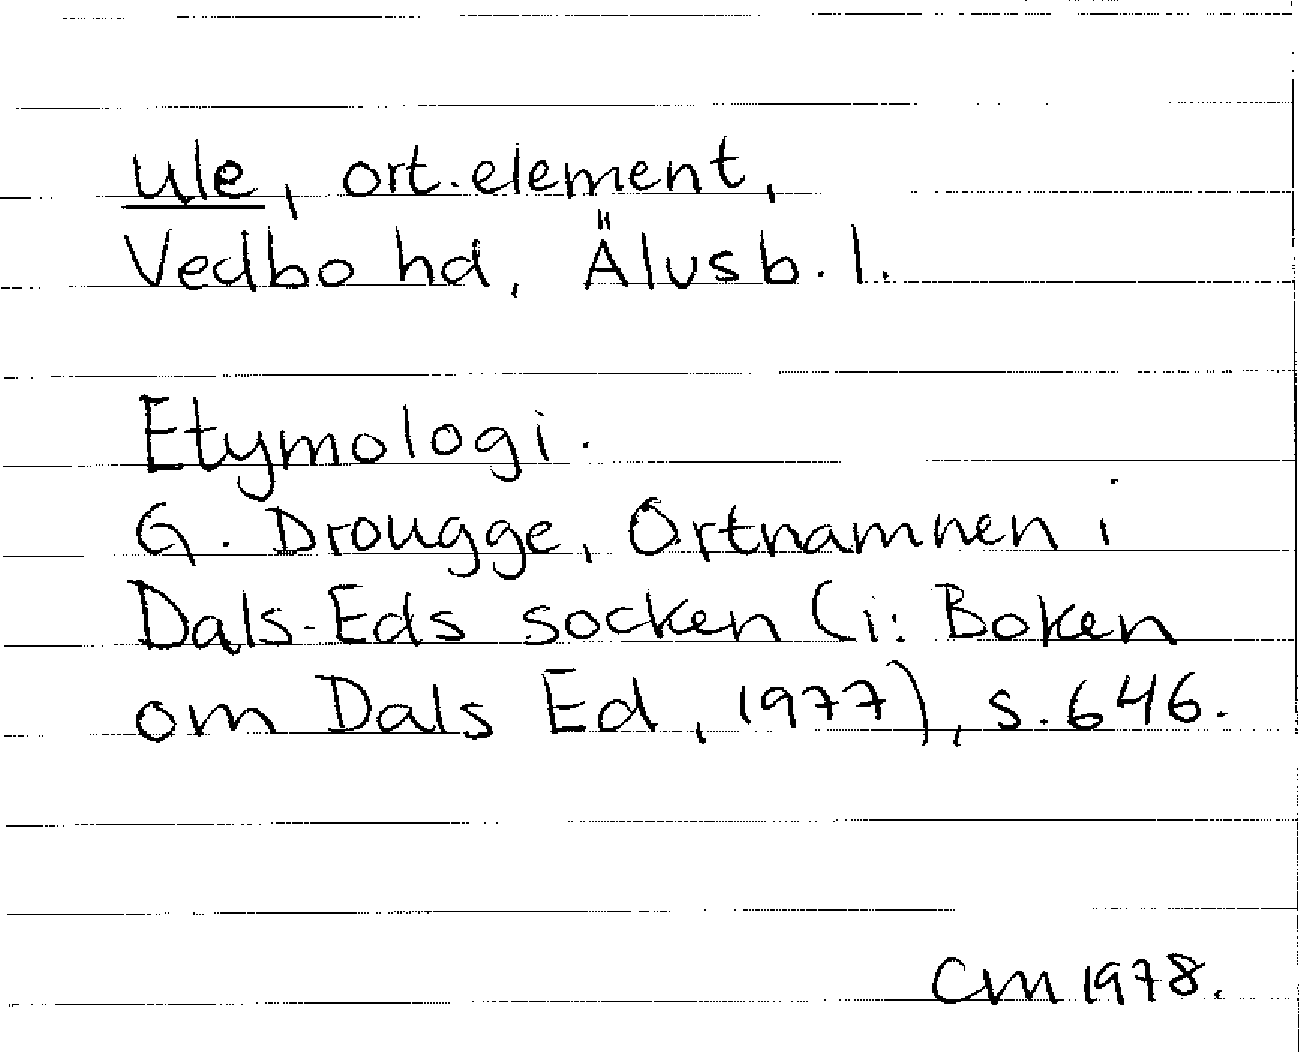 ule, ort.element,
Vedbo hd, Älvsb. l.
Etymologi.
G. Drougge, Ortnamnen i
Dals-Eds socken (i: Boken
om Dals Ed, 1977), s. 646.
CM 1978.